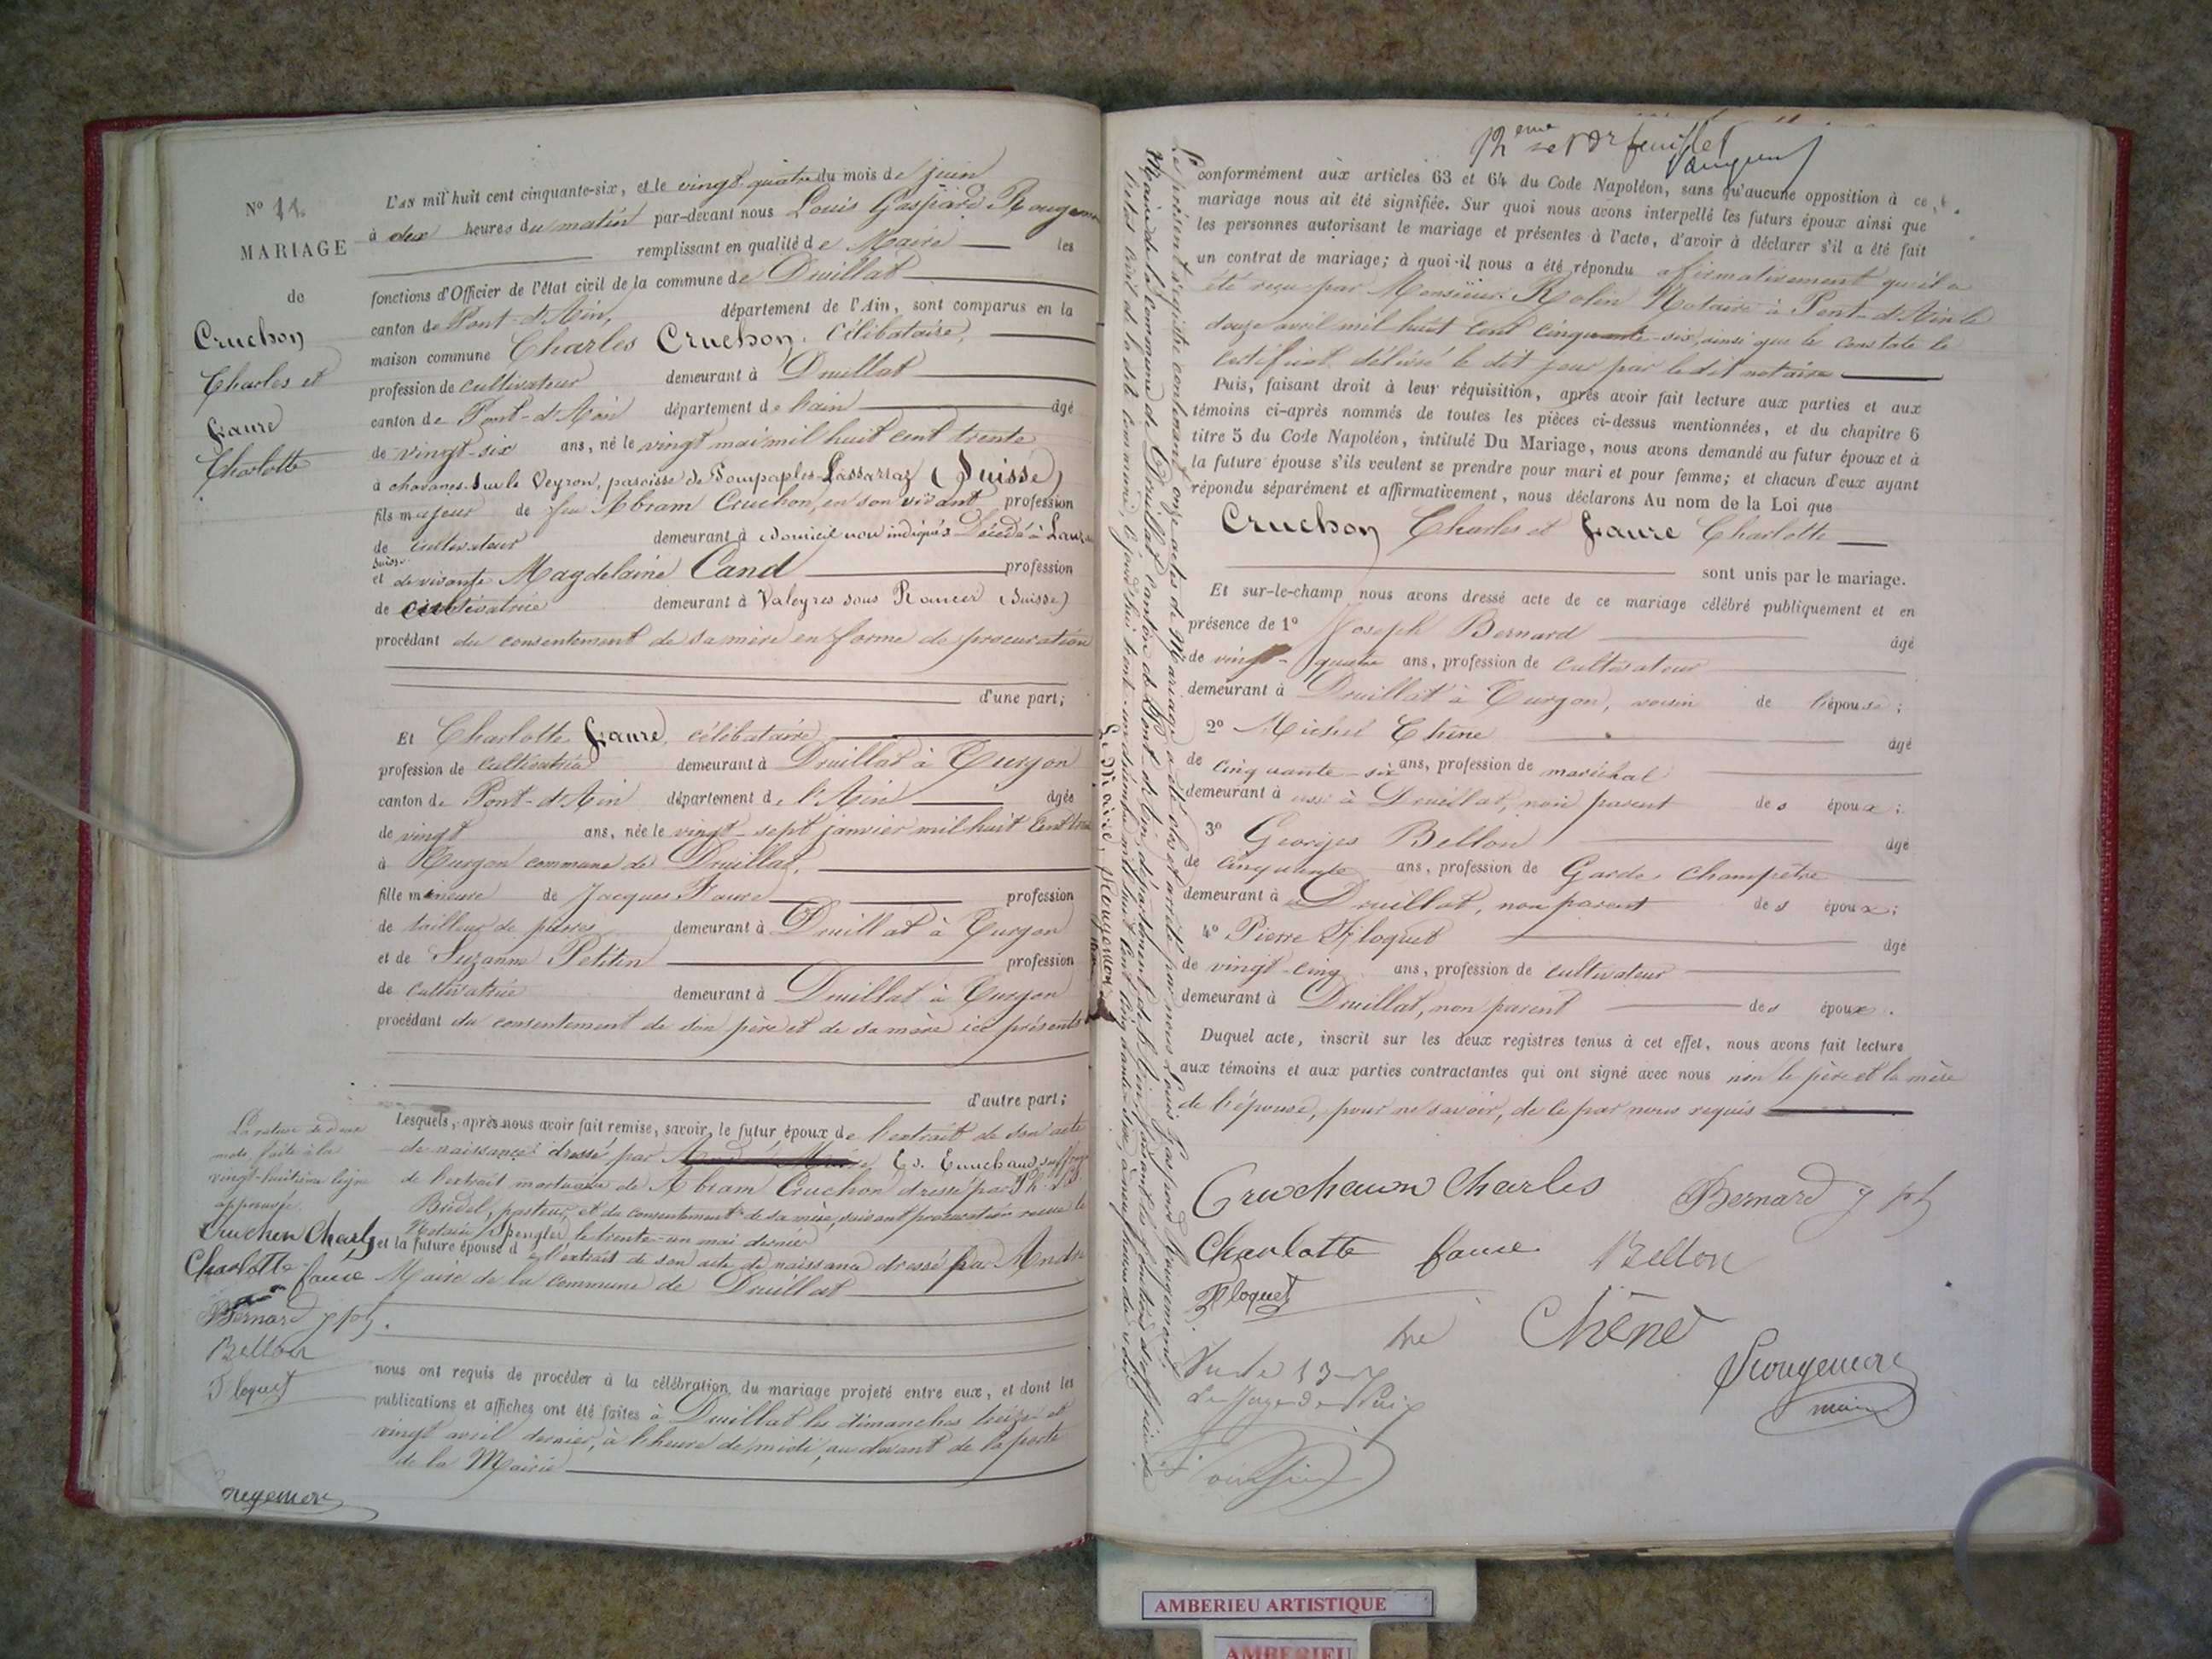 N° 11.
MARIAGE
de
Cruchon
Charles et
faure
Charlotte
L'an mil huit cent cinquante-six, et le vingt-quatre du mois de juin
à dix heures du matin par-devant nous Louis Gaspard
remplissant en qualité de Maire les
fonctions d'Officier de l'état civil de la commune de Druillat
canton de Pont-d'Ain, département de l'Ain, sont comparus en la
maison commune Charles Cruchon, célibataire,
profession de cultivateur demeurant à Druillat
canton de Pont-d'Ain département de l'ain âgé
de vingt-six ans, né le vingt mai mil huit cent trente
à chavanes sur le Veyron, paroisse de Pompaples Lassarraz (Suisse)
fils majeur de feu Abram Cruchon, en son vivant profession
de cultivateur demeurant à domicile non indiqués Décédé à
Suisse
et de vivante Magdelaine Cand profession
de cultivatrice demeurant à Valeyres sous Rancer (Suisse)
procédant du consentement de sa mère en forme de procuration
d'une part;
Et Charlotte faure, célibataire
profession de cultivatrice demeurant à Druillat à Turgon
canton de Pont-d'Ain département de l'Ain âgée
de vingt ans, née le vingt-sept janvier mil huit cent
à Turgon commune de Druillat,
fille mineure de Jacques Faure profession
de tailleur de pierres demeurant à Druillat à Turgon
et de Suzanne Petitin profession
de cultivatrice demeurant à Druillat à Turgon
procédant du consentement de son père et de sa mère ici présents
d'autre part;
Lesquels, après nous avoir fait remise, savoir, le futur époux de l'extrait de son acte
de naissance dressé par
de l'extrait mortuaire de Abram Cruchon dressé par
Bridel, pasteur, et du consentement de sa mère, suivant procuration reçue le
Notaire Spengler le trente-un mai dernier
et la future épouse de l'extrait de son acte de naissance dressé par
Maire de la commune de Druillat
nous ont requis de procéder à la célébration du mariage projeté entre eux, et dont les
publications et affiches ont été faites à Druillat les dimanches treize et
vingt avril dernier, à l'heure de midi, au devant de la porte
de la Mairie
La rature de deux
mots faite à la
vingt-huitième ligne
approuvée.
Cruchon Charles
Charlotte faure
Bernard
Bellon
Floquet
12eme et dr feuillet
conformément aux articles 63 et 64 du Code Napoléon, sans qu'aucune opposition à ce
mariage nous ait été signifiée. Sur quoi nous avons interpellé les futurs époux ainsi que
les personnes autorisant le mariage et présentes à l'acte, d'avoir à déclarer s'il a été fait
un contrat de mariage; à quoi il nous a été répondu afirmativement qu'il a
été reçu par Monsieur Rolin Notaire à Pont-d'Ain le
douze avril mil huit cent cinquante-six, ainsi que le constate le
certificat délivré le dit jour par le dit notaire
Puis, faisant droit à leur réquisition, après avoir fait lecture aux parties et aux
témoins ci-après nommés de toutes les pièces ci-dessus mentionnées, et du chapitre 6
titre 5 du Code Napoléon, intitulé Du Mariage, nous avons demandé au futur époux et à
la future épouse s'ils veulent se prendre pour mari et pour femme; et chacun d'eux ayant
répondu séparément et affirmativement, nous déclarons Au nom de la Loi que
Cruchon Charles et faure Charlotte
sont unis par le mariage.
Et sur-le-champ nous avons dressé acte de ce mariage célébré publiquement et en
présence de 1° Joseph Bernard âgé
de vingt-quatre ans, profession de cultivateur
demeurant à Druillat à Turgon, voisin de l'épouse;
2° Michel Chêne âgé
de cinquante-six ans, profession de maréchal
demeurant à aussi à Druillat, non parent des époux;
3° Georges Bellon âgé
de cinquante ans, profession de Garde Champêtre
demeurant à Druillat, non parent des époux;
4° Pierre Floquet âgé
de vingt-cinq ans, profession de cultivateur
demeurant à Druillat, non parent des époux.
Duquel acte, inscrit sur les deux registres tenus à cet effet, nous avons fait lecture
aux témoins et aux parties contractantes qui ont signé avec nous non le père et la mère
de l'épouse, pour ne savoir, de ce par nous requis
Cruchaun Charles Bernard
Charlotte faure Bellon
Floquet
Chêne
Rougemont
maire
Le présent registre contenant onze actes de Mariage a été clos et arrêté par nous Louis Gaspard Rougemont,
Maire de la commune de Druillat, canton de Pont-d'Ain, département de l'Ain, faisant les fonctions d'officier de
Le Maire,
AMBERIEU ARTISTIQUE
AMBERIEU